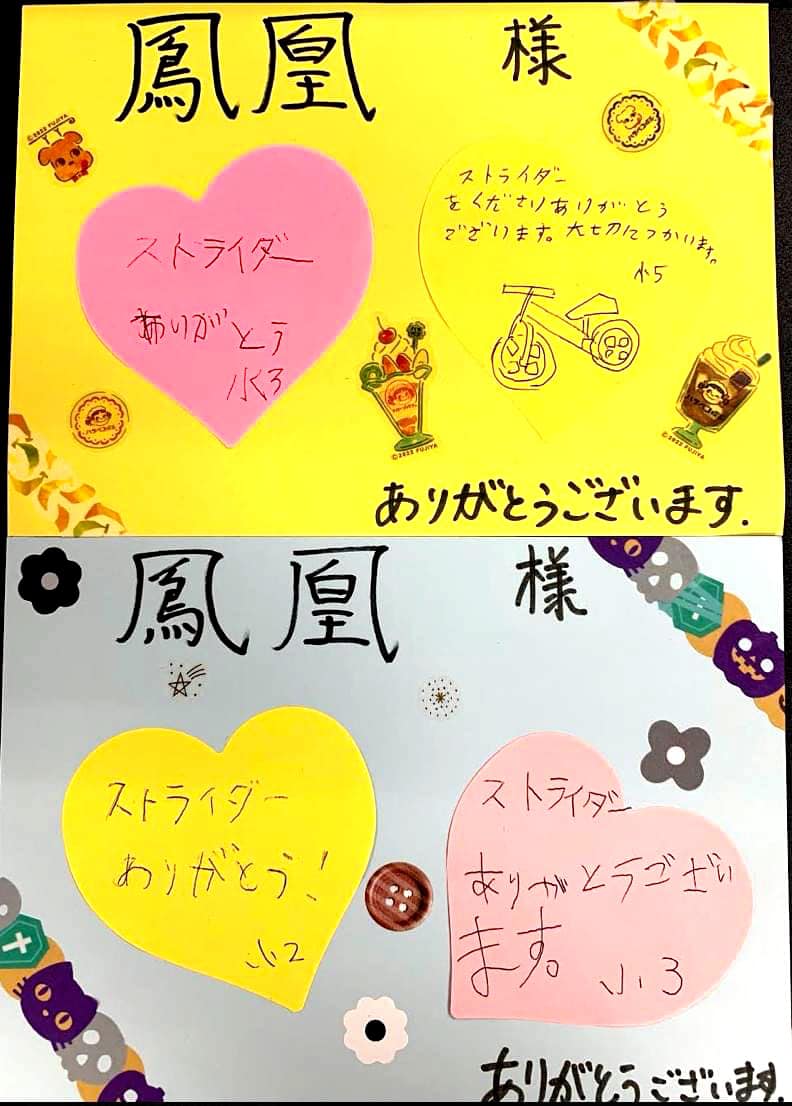 鳳凰 様
©2022 FUJIYA
ストライダー
ありがとう
小3
ストライダー
をくださりありがとう
ございます。大切につかいます。
小5
©2022 FUJIYA
©2022 FUJIYA
ありがとうございます.
鳳凰 様
ストライダー
ありがとう!
小2
ストライダー
ありがとうござい
ます。 小3
ありがとうございます.